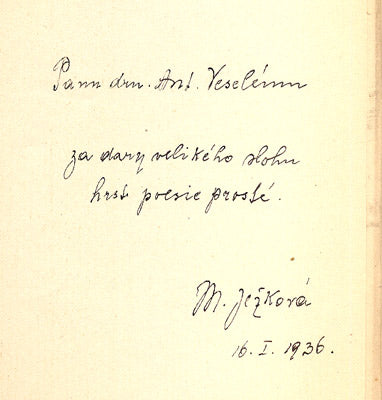 Panu dru. Ant. Veselému
za dary velikého slohu
hrst poesie prosté.
M. Ježková
16. I. 1936.